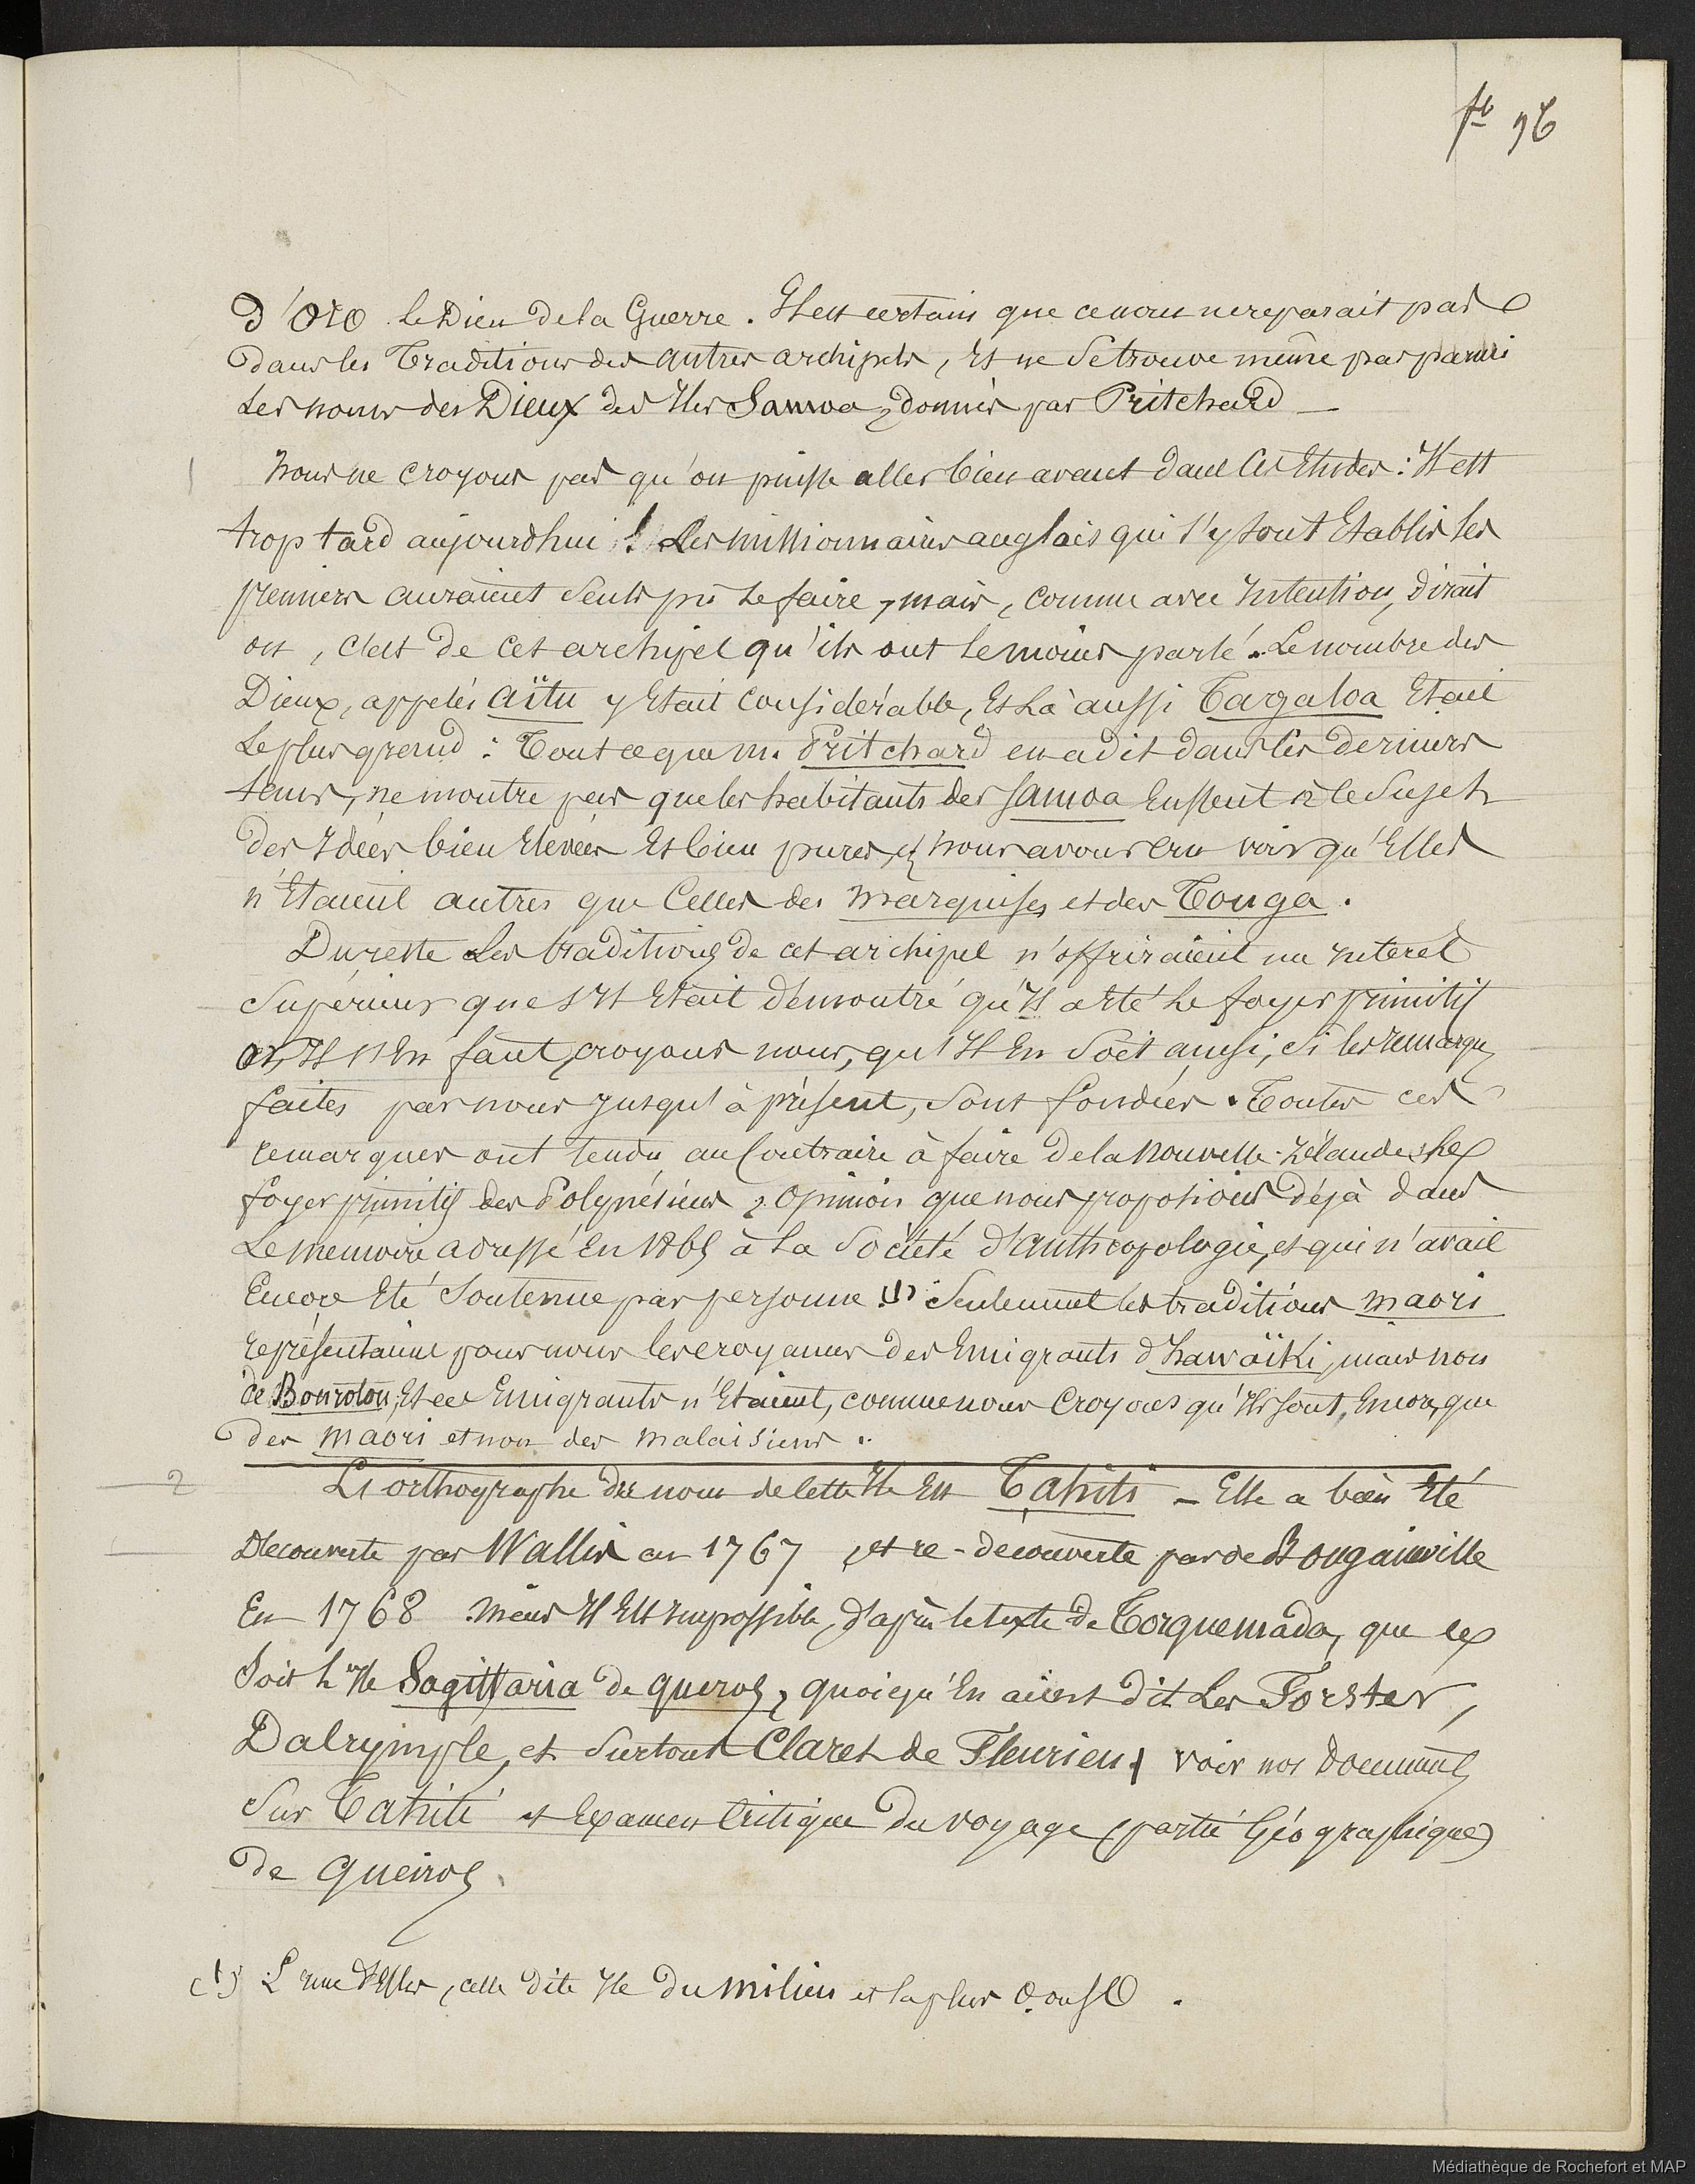 fo 96
d'Oro le Dieu de la Guerre. Il est certain que ce nom ne reparait pas
dans les Traditions des autres archipels, et ne se trouve même pas parmi
les noms des Dieux des Iles Samoa, donnés par Pritchard —
Nous ne croyons pas qu'on puisse aller bien avant dans ces Etudes : Il est
trop tard aujourdhui ! Les missionnaires anglais qui s'y sont Etablis les
premiers auraient seuls pu le faire, mais, comme avec Intention, dirait
on, c'est de cet archipel qu'ils ont le moins parlé. Le nombre des
Dieux, appelés aïtu y Etait considérable, et là aussi Tagaloa Etait
le plus grand : Tout ce que m. Pritchard en a dit dans les derniers
tems, ne montre pas que les habitants des Samoa Eussent à ce sujet
des Idées bien Elevées et bien pures, et nous avons cru voir qu'Elles
n'Etaient autres que Celles des marquises et des Tonga.
Du reste les traditions de cet archipel n'offriraient un Interet
supérieur que s'Il Etait démontré qu'Il a été le foyer primitif
or, Il s'En faut, croyons nous, qu'Il En soit ainsi, si les remarques
faites par nous Jusqu'à présent, sont fondées. Toutes ces
remarques ont tendu au Contraire à faire de la Nouvelle-Zélande le
foyer primitif des Polynésiens, opinion que nous proposions déjà dans
le memoire adressé En 1865 à la Société d'anthropologie, et qui n'avait
Encore Eté soutenue par personne. (1) Seulement les traditions maori
représentaient pour nous les croyances des Emigrants d'hawaïki, mais non
de Bourotou, Et ces Emigrants n'Etaient, comme nous Croyons qu'Ils sont Encore, que
des maori et non des malaisiens.
2 L'orthographe du nom de cette Ile Est Tahiti — Elle a bien Eté
Découverte par Wallis en 1767, et re-decouverte par de Bougainville
En 1768 mais Il Est Impossible, d'après le texte de Torquemada, que ce
soit l'Ile Sagittaria de queros, quoiqu'En aient dit les Forster,
Dalrymple, et surtout Claret de Fleurieu. voir nos documents
sur Tahiti et Examen Critique du voyage (partie Géographique)
de queiros.
(1) L'une d'Elles, celle dite Ile du milieu et la plus